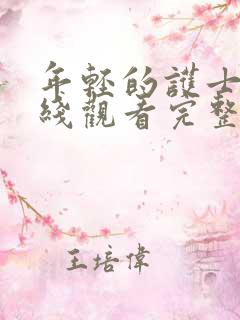 年輕的護士
綫觀看完整
王培偉